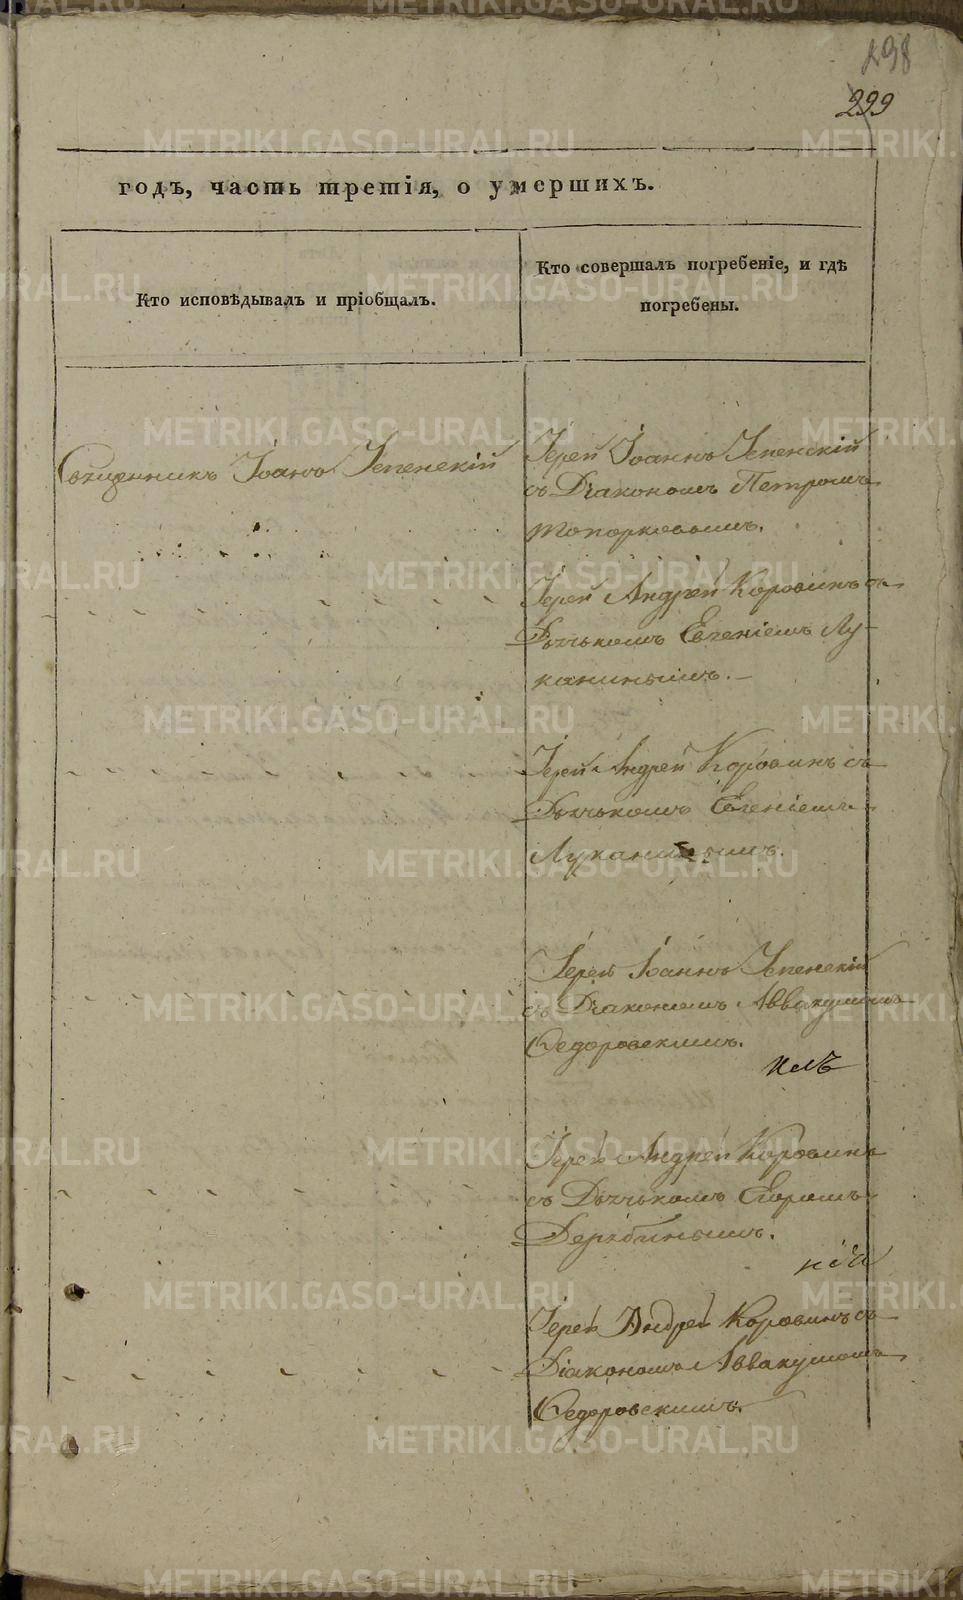 298
299
годъ, часть третія, о умершихъ.
Кто исповѣдывалъ и пріобщалъ.
Кто совершалъ погребеніе, и гдѣ
погребены.
Священникъ Іоаннъ Успенскій
Іерей Іоаннъ Успенскій
съ Діакономъ Петромъ
Топорковымъ.
Іерей Андрей Коровинъ съ
Дьячькомъ Евгеніемъ Лу-
канинымъ.
Іерей Андрей Коровинъ съ
Дьячькомъ Евгеніемъ
Луканинымъ.
Іерей Іоаннъ Успенскій
съ Діакономъ Аввакумомъ
Федоровскимъ.
Іерей Андрей Коровинъ
съ Дьячькомъ Егоромъ
Дерябинымъ.
Іерей Андрей Коровинъ съ
Діакономъ Аввакумомъ
Федоровскимъ.
METRIKI.GASO-URAL.RU